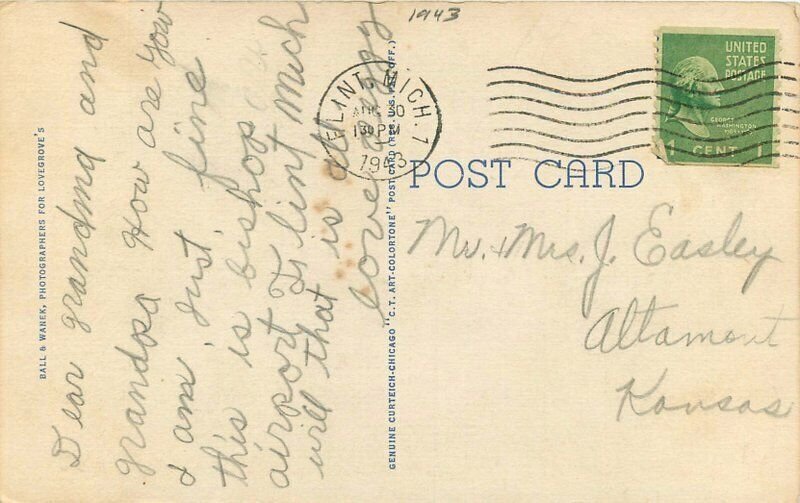 1943
Dear grandma and
grandpa How are you
I am just fine
this is bishop
airport Flint Mich
will that is all
love
BALL & WANEK, PHOTOGRAPHERS FOR LOVEGROVE'S
GENUINE CURTEICH-CHICAGO "C.T. ART-COLORTONE" POST CARD (REG. U.S. PAT. OFF.)
FLINT, MICH. 1
AUG 30
130 PM
1943
UNITED
STATES
POSTAGE
GEORGE
WASHINGTON
1 CENT 1
POST CARD
Mr. & Mrs. J. Easley
Altamont
Kansas